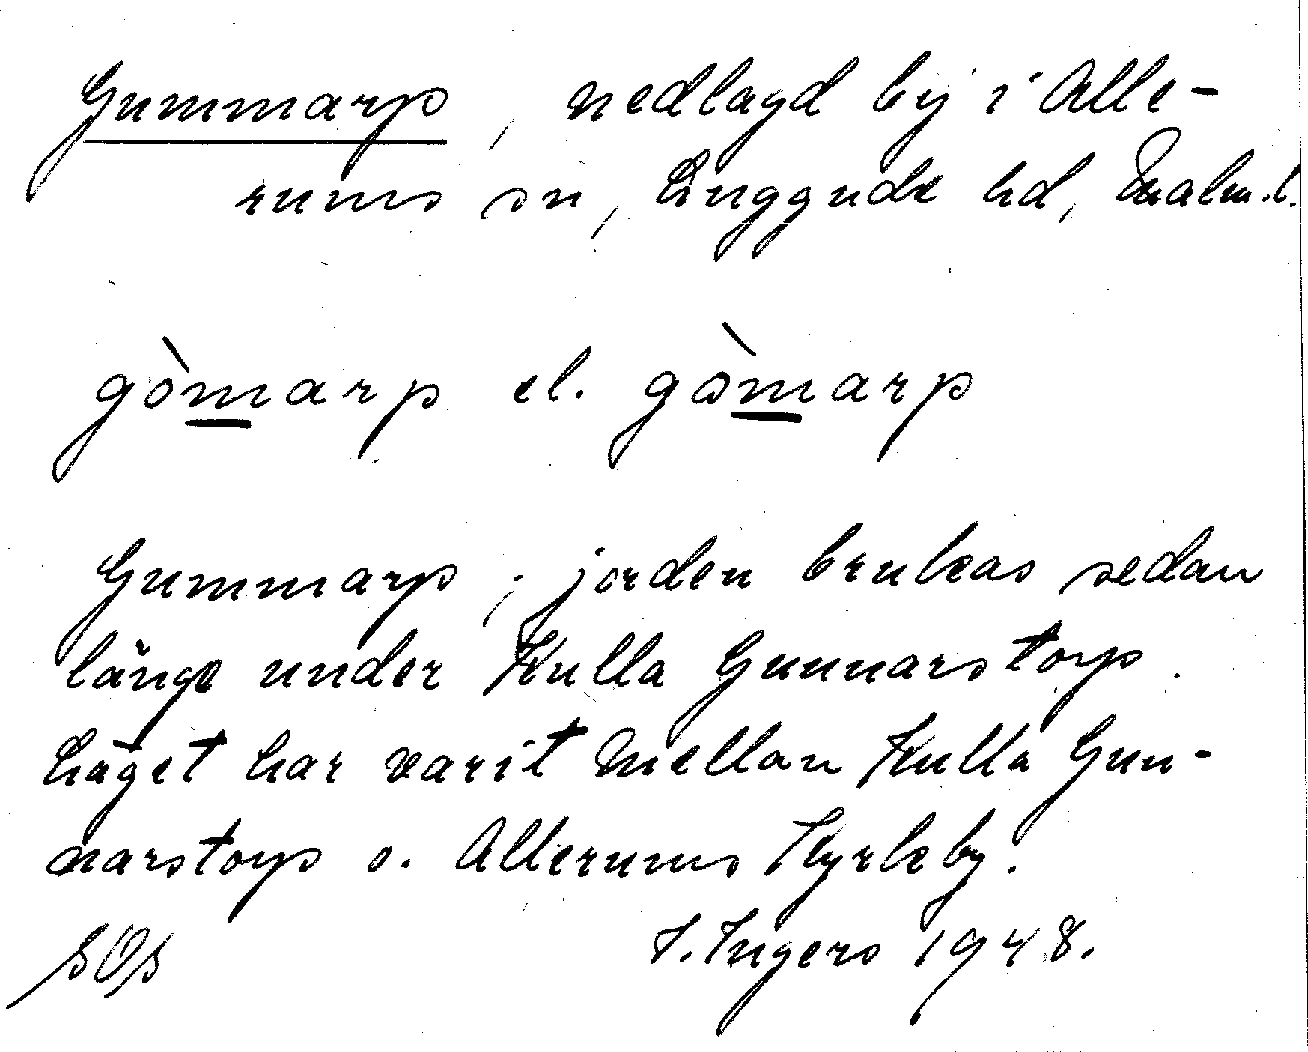 Gummarp, nedlagd by i Alle-
rums sn, Luggude hd, Malm.l.
gòmarp el. gòmarp
Gummarp; jorden brukas sedan
länge under Kulla Gunnarstorp.
Läget har varit mellan Kulla Gun-
narstorp o. Allerums Kyrkby.
I. Ingers 1948.
SOS